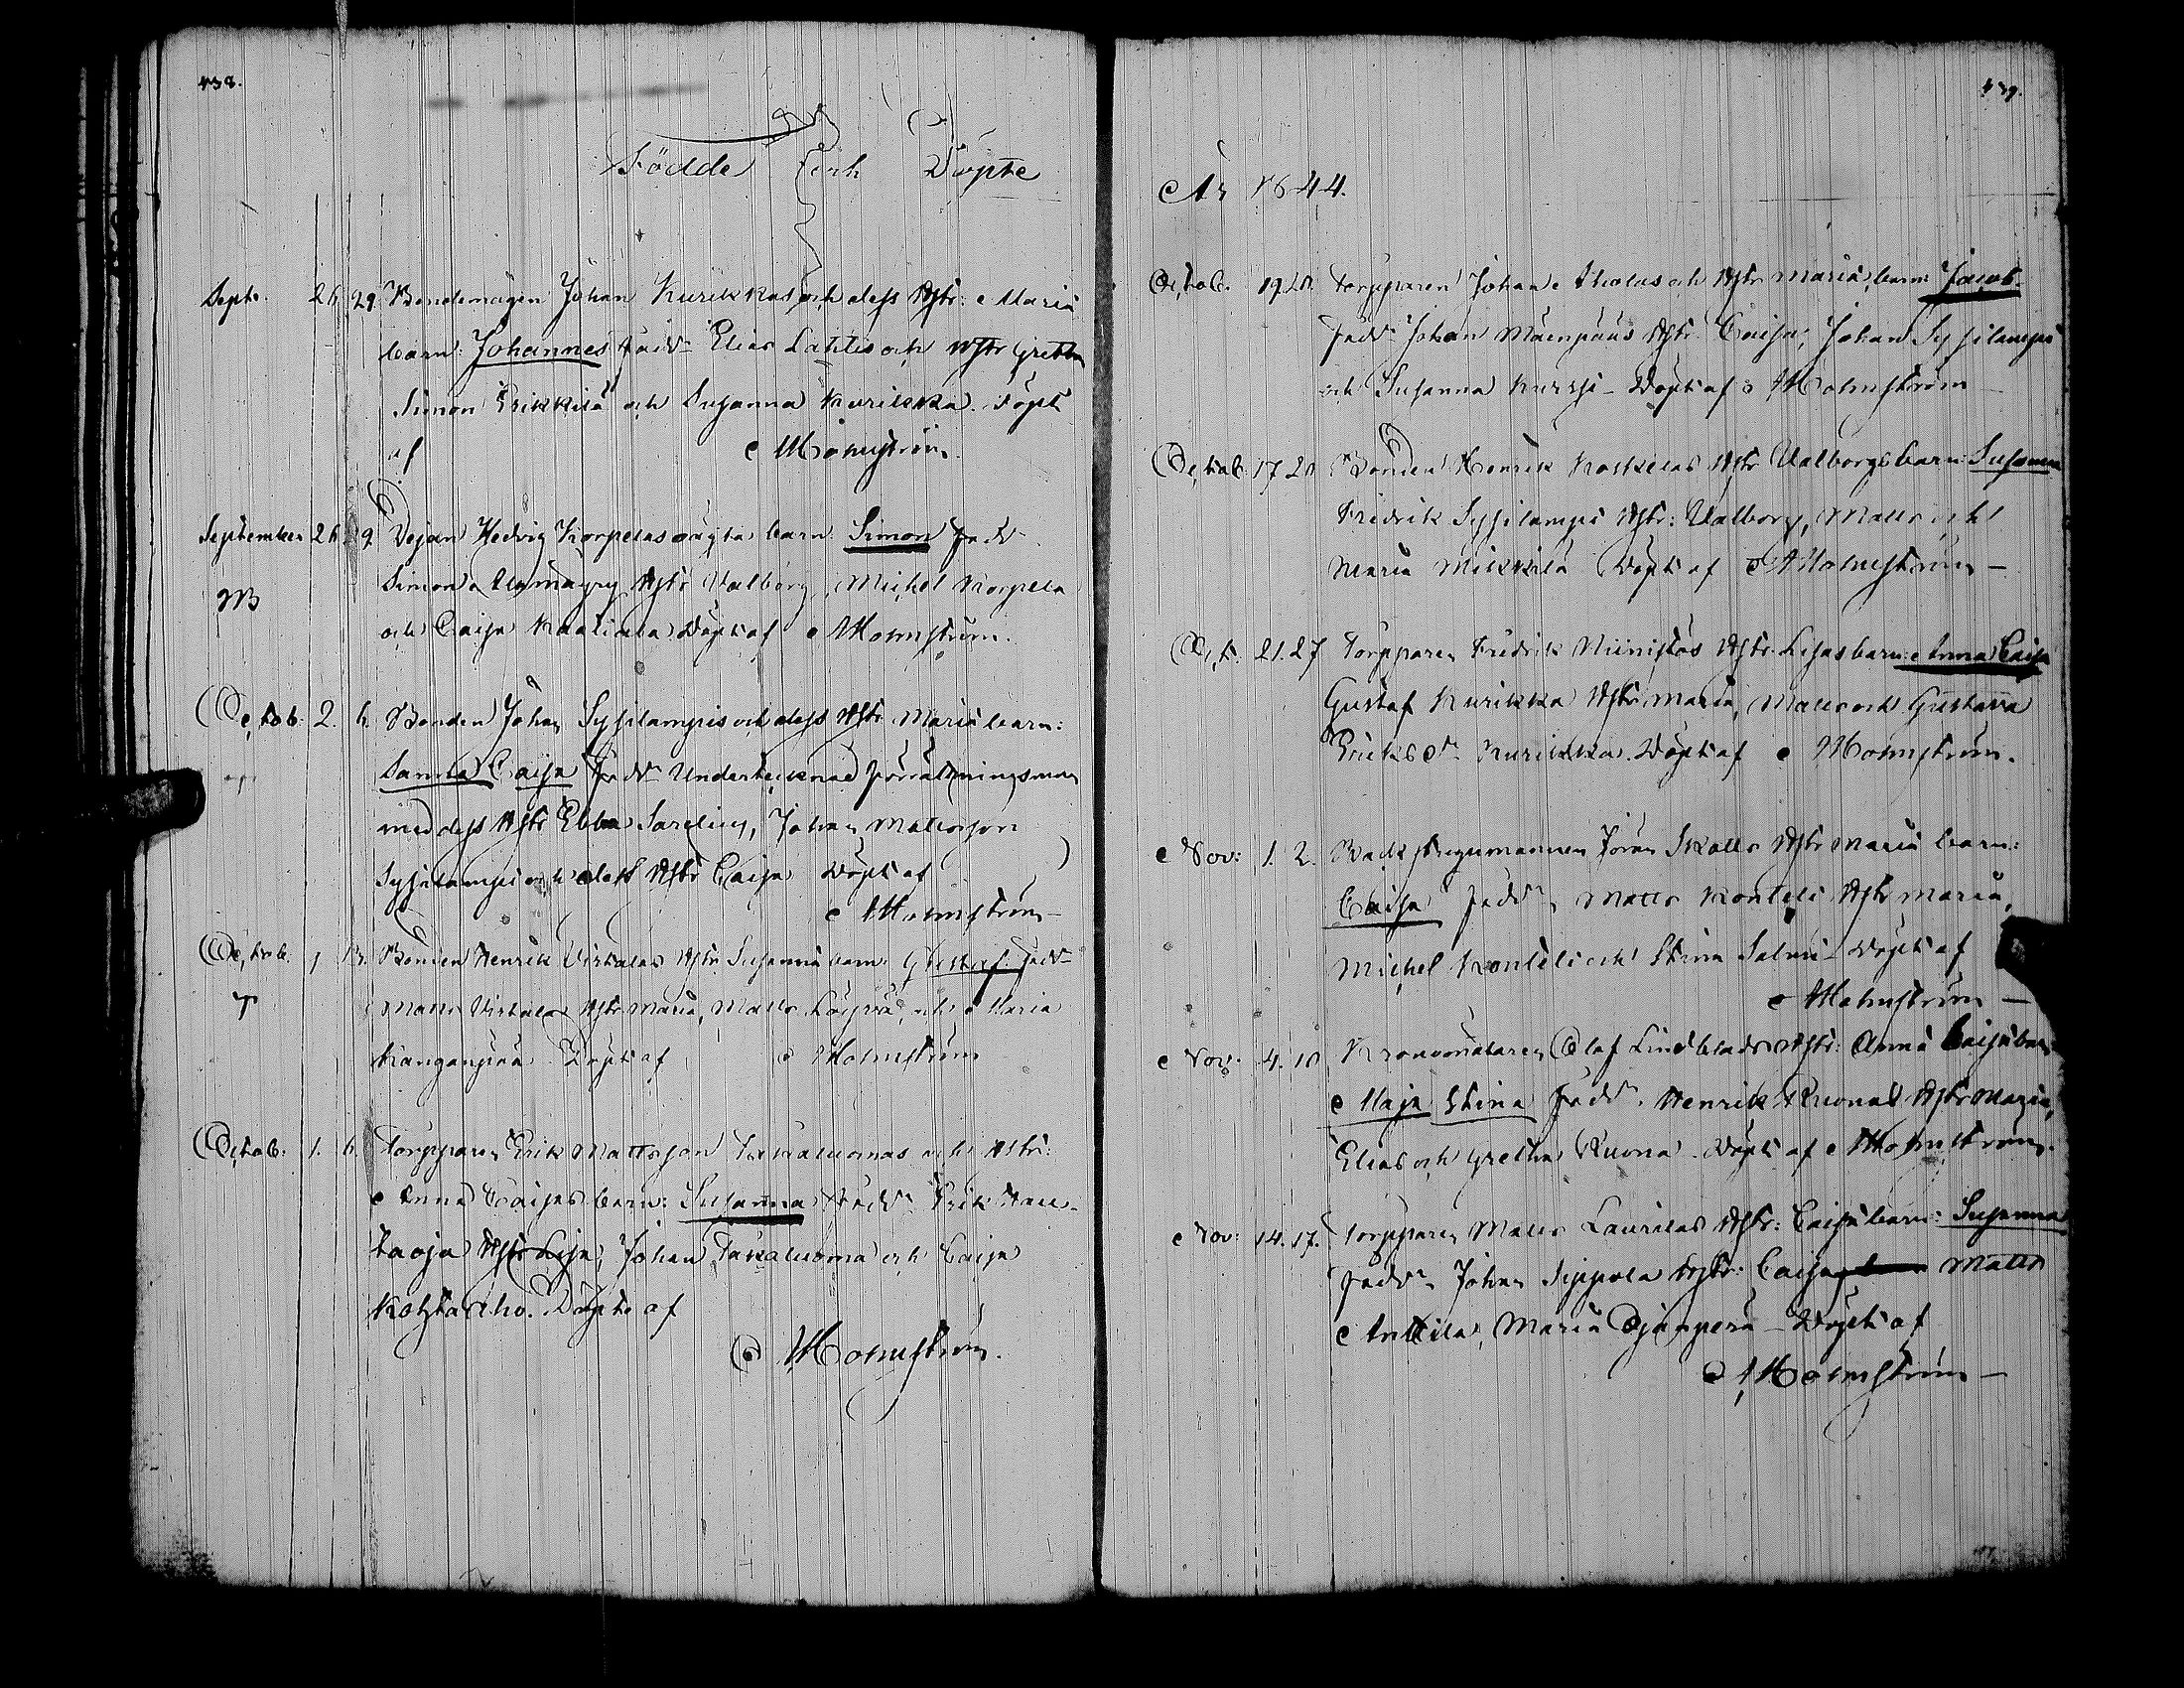 438.
Födde och Döpte
Septr. 26. 29. Bondemågen Johan Kurikkas och dess Hstr: Maria
barn: Johannes Fadr Elias Lahtis och Hstr Gretha
Simon Erikkilä och Susanna Kurikka. Döpt
af Holmström.
September 26. 29 Pejan Hedvig Korpelas oägta barn Simon Fadr
Simon Hstr Valborg, Michel Korpela
och Caisa Döpt af Holmström.
Octob: 2. 6. Bonden Johan Sysilampis och dess Hstr Maria barn:
Sanna Caisa Fadr Undertecknad förrättningsman
med dess Hstr Ebba Sarelius, Johan Mattsson
Sysilampi och dess Hstr Caisa Döpt af
Holmström
Octob. 1 13. Bonden Henrik Virtalas Hstr Susanna barn: Gustaf Fadr
Matts Virtala Hstr Maria, Matts och Maria
Kanganpää Döpt af Holmström
Octob: 1. 6. Torpparen Erik Mattsson Takaluomas och Hstr:
Anna Caisas barn: Susanna Fadr Erik Hau-
taoja Hstr Lisa, Johan Takaluoma och Caisa
Döpt af
Holmström.
439.
År 1844.
Octob. 19. 20. Torpparen Johan Aholas och Hstr Maria, barn: Jacob.
Fadr Johan Mäenpääs Hstr Caisa, Johan Sysilampi
och Susanna Kurssi - Döpt af Holmström
Octob: 17 20 Bonden Henrik Koskelas Hstr Valborgs barn Susanna
Fredrik Sysilampi Hstr: Valborg, Matts och
Maria Mikkilä Döpt af Holmström -
Oct. 21. 27 Torpparen Fredrik Niinistös Hstr. Lisas barn: Anna Caisa
Gustaf Kurikka Hstr Maria, Matts och Gustava
Eriksdr Kurikka. Döpt af Holmström.
Nov: 1. 2. Backstugumannen Jöran Skatts Hstr Maria barn:
Caisa Fadr Matts Konteli Hstr Maria,
Michel Konteli och Stina Salmi - Döpt af
Holmström -
Nov: 4. 10 Kronvoutaren Olaf Lindblads Hstr: Anna Caisa barn
Maja Stina Fadr. Henrik Ruona Hstr Maria,
Elias och Gretha Ruona. Döpt af Holmström.
Nov: 14. 17. Torpparen Matts Laurilas Hstr: Caisa barn: Susanna
Fadr Johan Seppola Hstr: Caisa Matts
Anttila, Maria Ojanperä - Döpt af
Holmström -